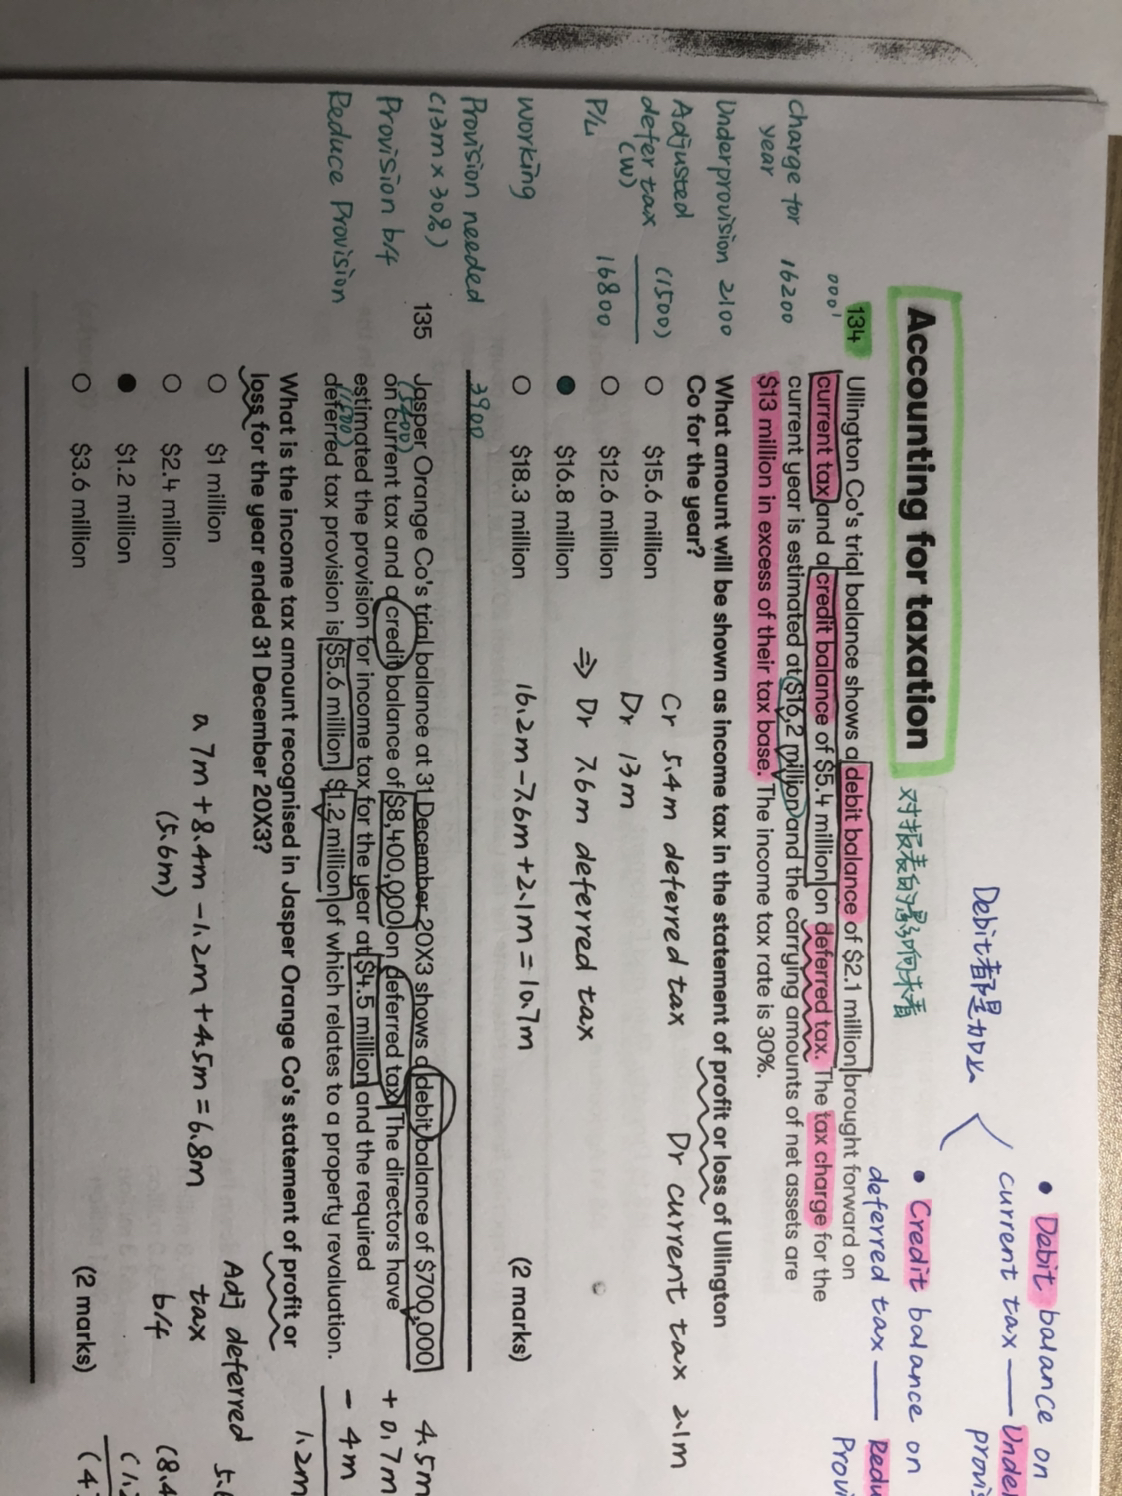 • Debit balance on
current tax —
• Credit balance on
deferred tax —
Debit都是加以
Accounting for taxation
对报表的影响来看
134 Ullington Co's trial balance shows a debit balance of $2.1 million brought forward on
current tax and a credit balance of $5.4 million on deferred tax. The tax charge for the
current year is estimated at $16.2 million and the carrying amounts of net assets are
$13 million in excess of their tax base. The income tax rate is 30%.
What amount will be shown as income tax in the statement of profit or loss of Ullington
Co for the year?
○ $15.6 million
○ $12.6 million
● $16.8 million
○ $18.3 million
(2 marks)
000'
Charge for 16200
year
Underprovision 2100
Adjusted
defer tax (1500)
(W)
P/L 16800
Working
Provision needed
(13m × 30%) 3900
Provision b/f (5400)
Reduce Provision (1500)
Cr 5.4m deferred tax Dr current tax 2.1m
Dr 13m
⇒ Dr 7.6m deferred tax
16.2m-7.6m+2.1m = 10.7m
135 Jasper Orange Co's trial balance at 31 December 20X3 shows a debit balance of $700,000
on current tax and a credit balance of $8,400,000 on deferred tax. The directors have
estimated the provision for income tax for the year at $4.5 million and the required
deferred tax provision is $5.6 million, $1.2 million of which relates to a property revaluation.
What is the income tax amount recognised in Jasper Orange Co's statement of profit or
loss for the year ended 31 December 20X3?
○ $1 million
○ $2.4 million
● $1.2 million
○ $3.6 million
(2 marks)
a 7m+8.4m -1.2m +4.5m = 6.8m
(5.6m)
4.5m
+ 0.7m
- 4m
1.2m
Adj deferred
tax
b/f (8.4